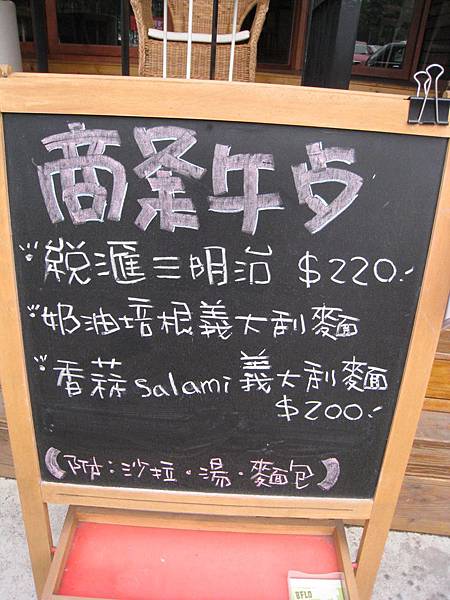 商業午歺
総滙三明治 $220.-
奶油培根義大利麵
香蒜salami義大利麵
$200.-
(附:沙拉·湯·麵包)